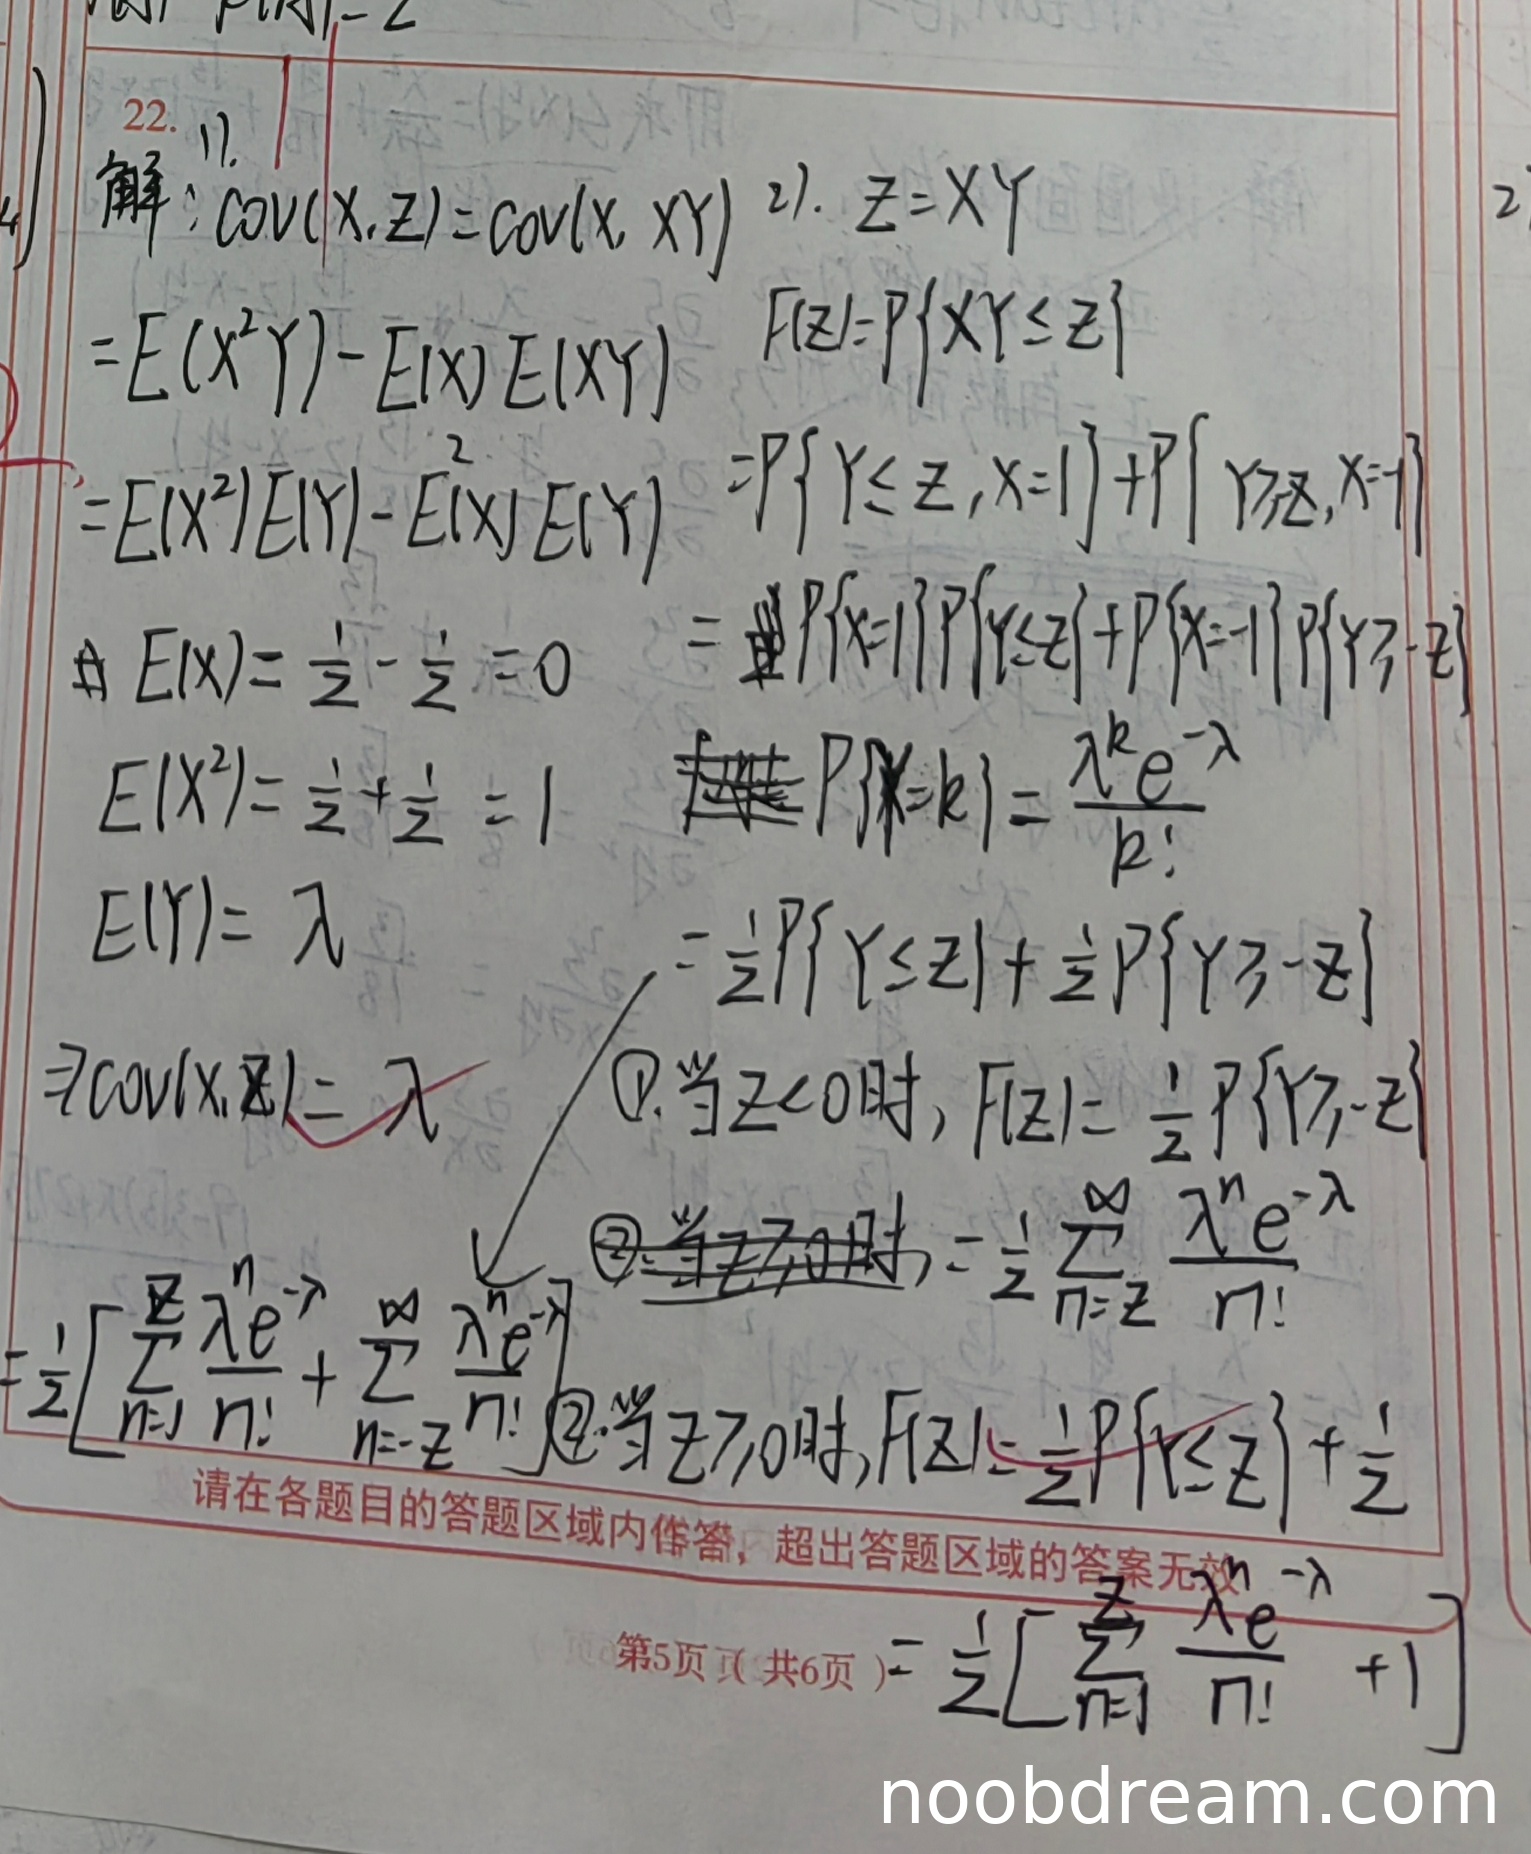 22.
1).
解: COV(X,Z)=COV(X, XY)
=E(X²Y)-E(X)E(XY)
=E(X²)E(Y)-E²(X)E(Y)
E(X)=1/2-1/2=0
E(X²)=1/2+1/2=1
E(Y)=λ
⇒COV(X,Z)=λ
=1/2[∑_{n=1}^{Z} λⁿe^{-λ}/n! + ∑_{n=-z}^{∞} λⁿe^{-λ}/n!]
2). Z=XY
F(Z)=P{XY≤Z}
=P{Y≤Z,X=1}+P{Y≥-Z,X=-1}
=P{X=1}P{Y≤Z}+P{X=-1}P{Y≥-Z}
P{Y=k}=λ^k e^{-λ}/k!
=1/2P{Y≤Z}+1/2P{Y≥-Z}
①.当Z<0时,F(Z)=1/2P{Y≥-Z}
=1/2∑_{n=-z}^{∞} λⁿe^{-λ}/n!
②.当Z≥0时,F(Z)=1/2P{Y≤Z}+1/2
=1/2[∑_{n=1}^{Z} λⁿe^{-λ}/n! +1]
请在各题目的答题区域内作答，超出答题区域的答案无效
第5页（共6页）
noobdream.com